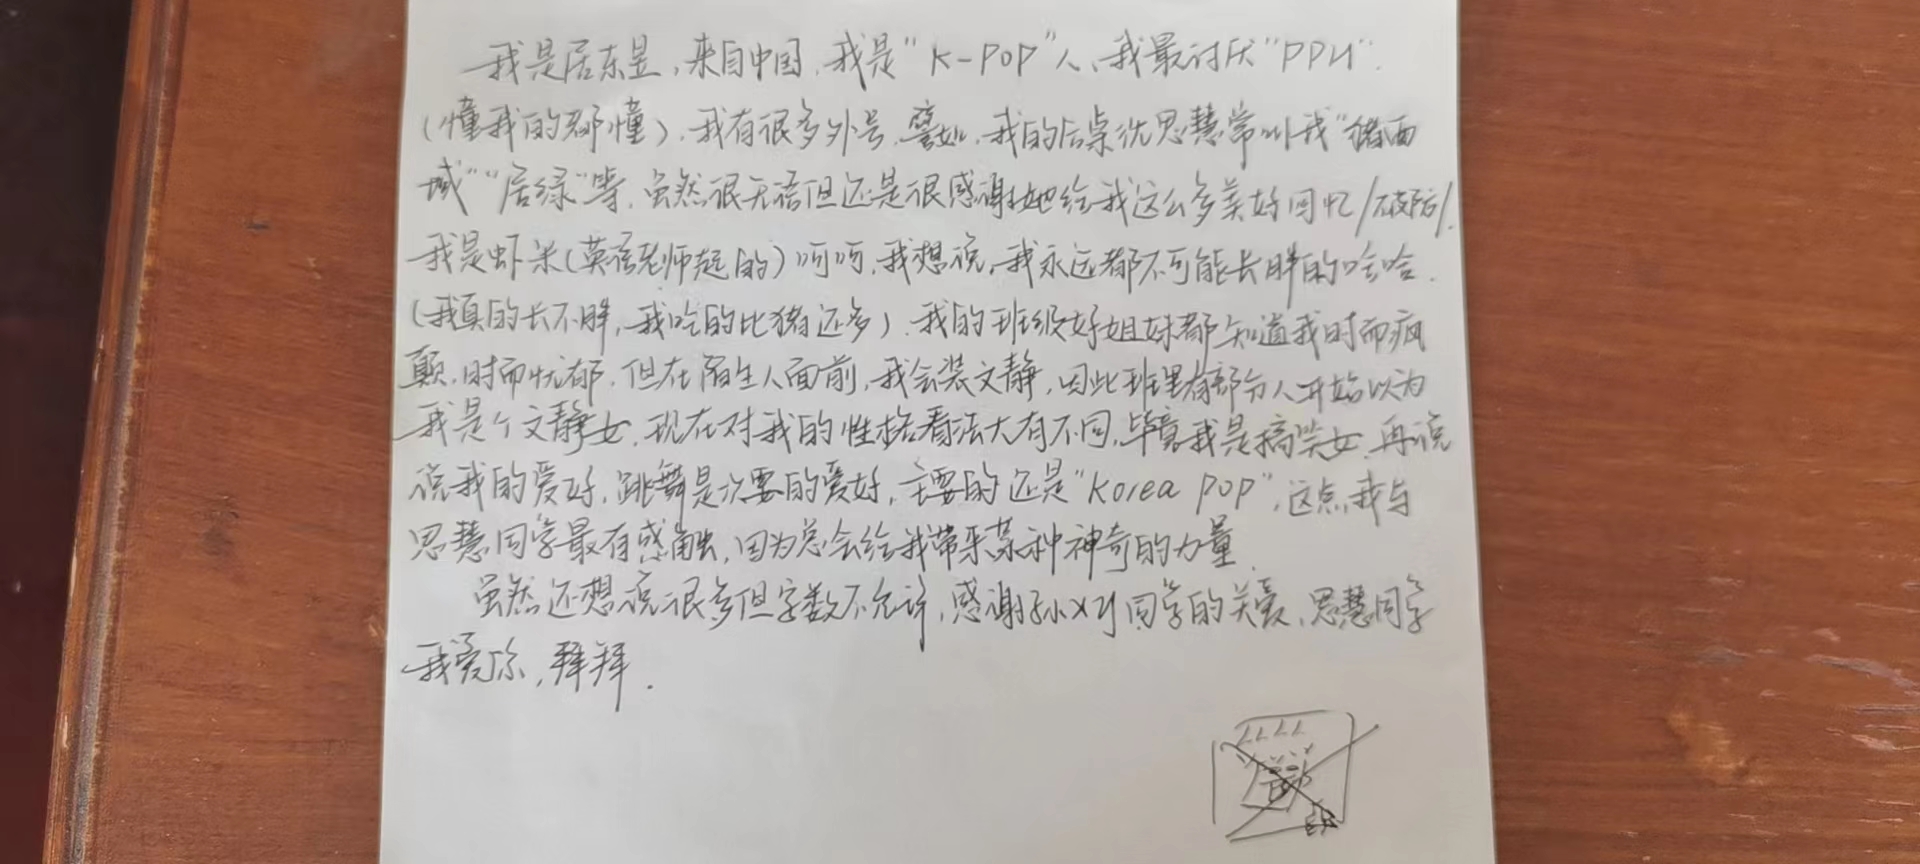 我是居东昱,来自中国,我是“K-POP”人、我最讨厌“PPU”.
(懂我的都懂),我有很多外号,譬如,我的后桌沈思慧常叫我“猪西
域”“居绿”等,虽然很无语但还是很感谢她给我这么多美好回忆/破防/.
我是虾米(英语老师起的)呵呵,我想说,我永远都不可能长胖的哈哈.
(我真的长不胖,我吃的比猪还多).我的班级好姐妹都知道我时而疯
颠,时而忧郁.但在陌生人面前,我会装文静,因此班里有部分人开始以为
我是个文静女,现在对我的性格看法大有不同,毕竟我是搞笑女.再说
说我的爱好,跳舞是次要的爱好,主要的还是“Korea pop”,这点我与
思慧同学最有感触,因为总会给我带来某种神奇的力量.
虽然还想说很多但字数不允许,感谢孙XY同学的关爱,思慧同学
我爱你,拜拜.